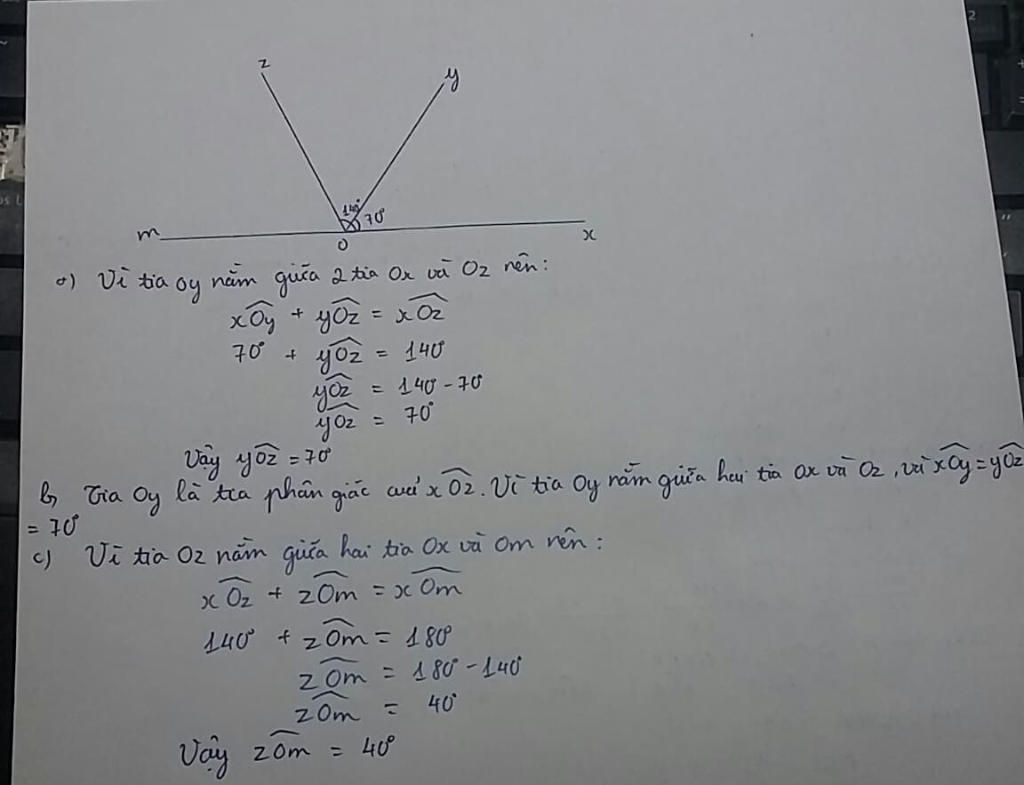 z
y
140°
70°
m
O
x
a) Vì tia Oy nằm giữa 2 tia Ox và Oz nên:
xOy + yOz = xOz
70° + yOz = 140°
yOz = 140° - 70°
yOz = 70°
Vậy yOz = 70°
b, Tia Oy là tia phân giác của xOz. Vì tia Oy nằm giữa hai tia Ox và Oz, và xOy = yOz
= 70°
c) Vì tia Oz nằm giữa hai tia Ox và Om nên:
xOz + zOm = xOm
140° + zOm = 180°
zOm = 180° - 140°
zOm = 40°
Vậy zOm = 40°